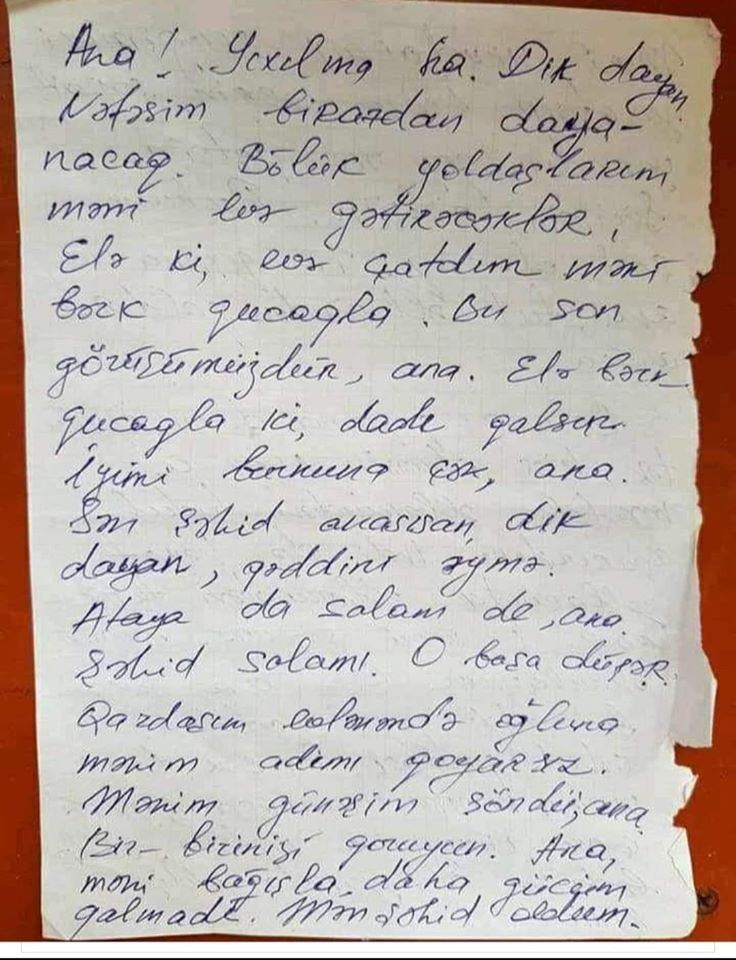 Ana! Yıxılma ha. Dik dayan.
Nəfəsim birazdan daya-
nacaq. Bölük yoldaşlarım
məni evə gətirəcəklər,
Elə ki, evə çatdım məni
bərk qucaqla. Bu son
görüşümüzdür, ana. Elə bərk
qucaqla ki, dadı qalsın
İyimi burnuna çək, ana.
Sən şəhid anasısan, dik
dayan, qəddini əymə.
Ataya da salam de, ana.
Şəhid salamı. O başa düşər.
Qardaşım evlənəndə oğluna
mənim adımı qoyarsız.
Mənim günəşim söndü, ana.
Bir-birinizi qoruyun. Ana,
məni bağışla, daha gücüm
qalmadı. Mən şəhid oldum.